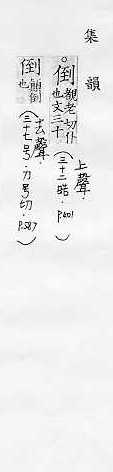 集韻
。倒覩老切仆
也文三十
上聲．
（三十二晧．P.401）
倒顛倒
也
去聲．
（三十七号．刀号切．P.587）